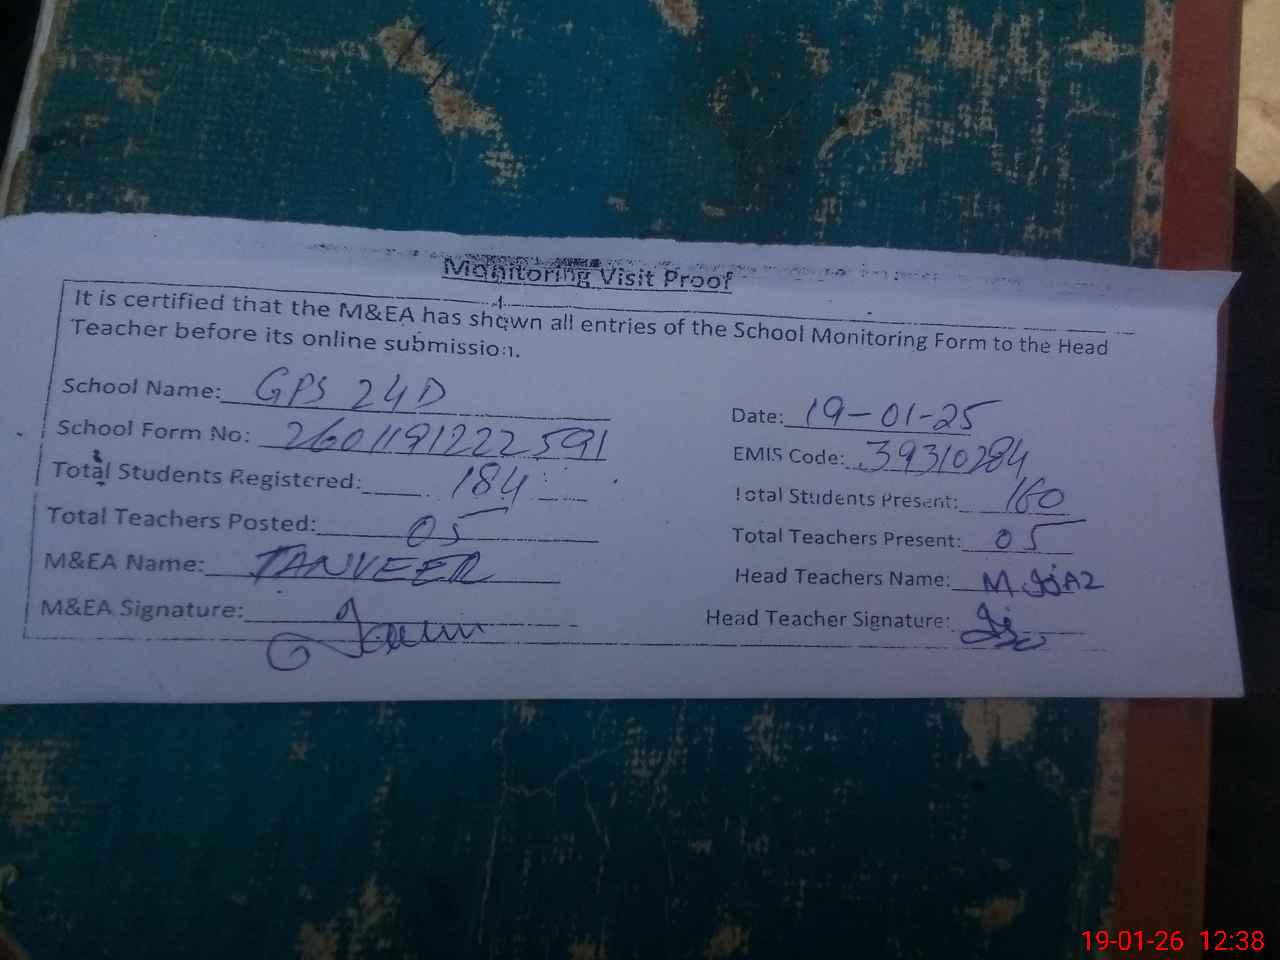 Monitoring Visit Proof
It is certified that the M&EA has shown all entries of the School Monitoring Form to the Head
Teacher before its online submission.
School Name: GPS 24D
Date: 19-01-25
School Form No: 2601191222591
EMIS Code: 39310284
Total Students Registered: 184
Total Students Present: 160
Total Teachers Posted: 05
Total Teachers Present: 05
M&EA Name: TANVEER
Head Teachers Name: M. IjAZ
M&EA Signature:
Head Teacher Signature:
19-01-26 12:38